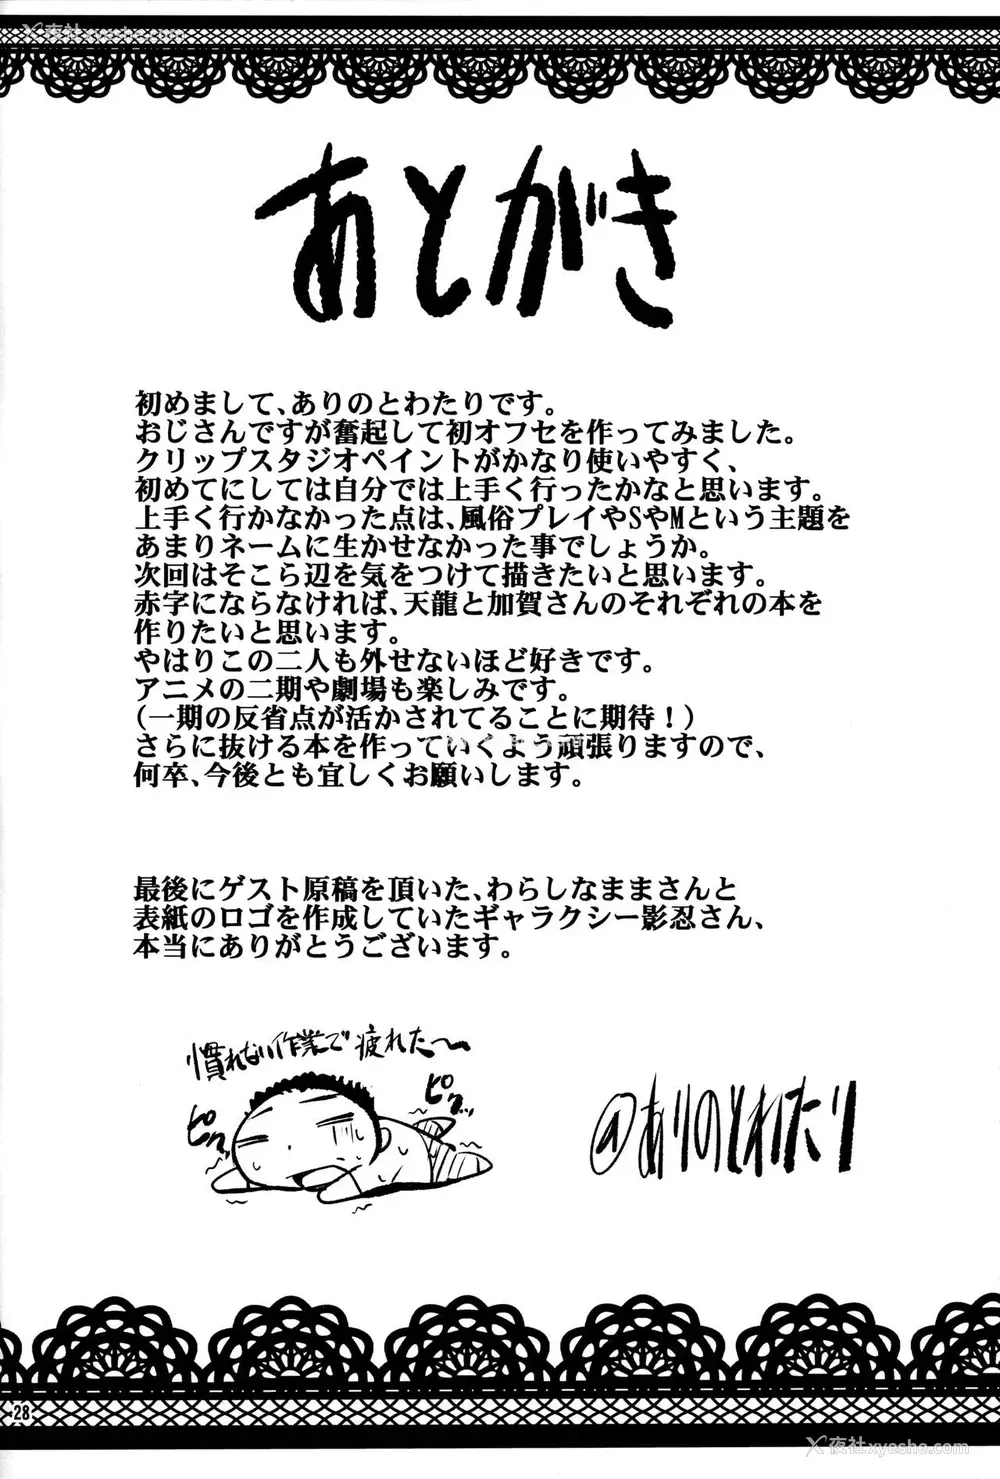 夜社xyeshe.com
あとがき
初めまして、ありのとわたりです。
おじさんですが奮起して初オフセを作ってみました。
クリップスタジオペイントがかなり使いやすく、
初めてにしては自分では上手く行ったかなと思います。
上手く行かなかった点は、風俗プレイやSやMという主題を
あまりネームに生かせなかった事でしょうか。
次回はそこら辺を気をつけて描きたいと思います。
赤字にならなければ、天龍と加賀さんのそれぞれの本を
作りたいと思います。
やはりこの二人も外せないほど好きです。
アニメの二期や劇場も楽しみです。
(一期の反省点が活かされてることに期待！)
さらに抜ける本を作っていくよう頑張りますので、
何卒、今後とも宜しくお願いします。
最後にゲスト原稿を頂いた、わらしなままさんと
表紙のロゴを作成していたギャラクシー影忍さん、
本当にありがとうございます。
慣れない作業で疲れた〜
ピク
ピク…
@ありのとわたり
28
夜社xyeshe.com